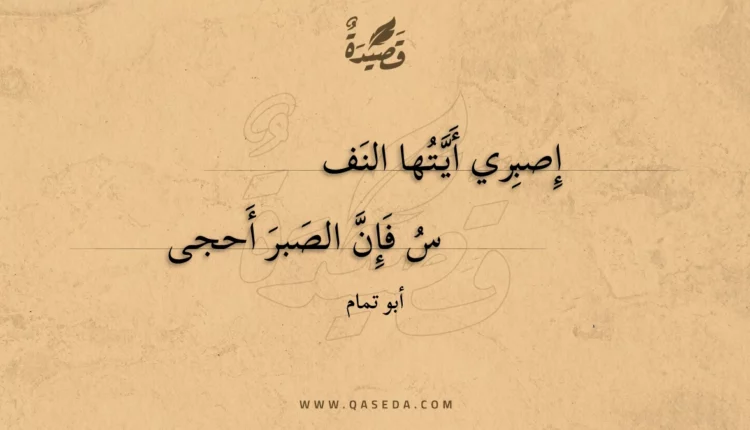 قَصِيدَةٌ
إِصبِري أَيَّتُها النَفـ
ـسُ فَإِنَّ الصَبرَ أَحجى
أبو تمام
WWW.QASEDA.COM